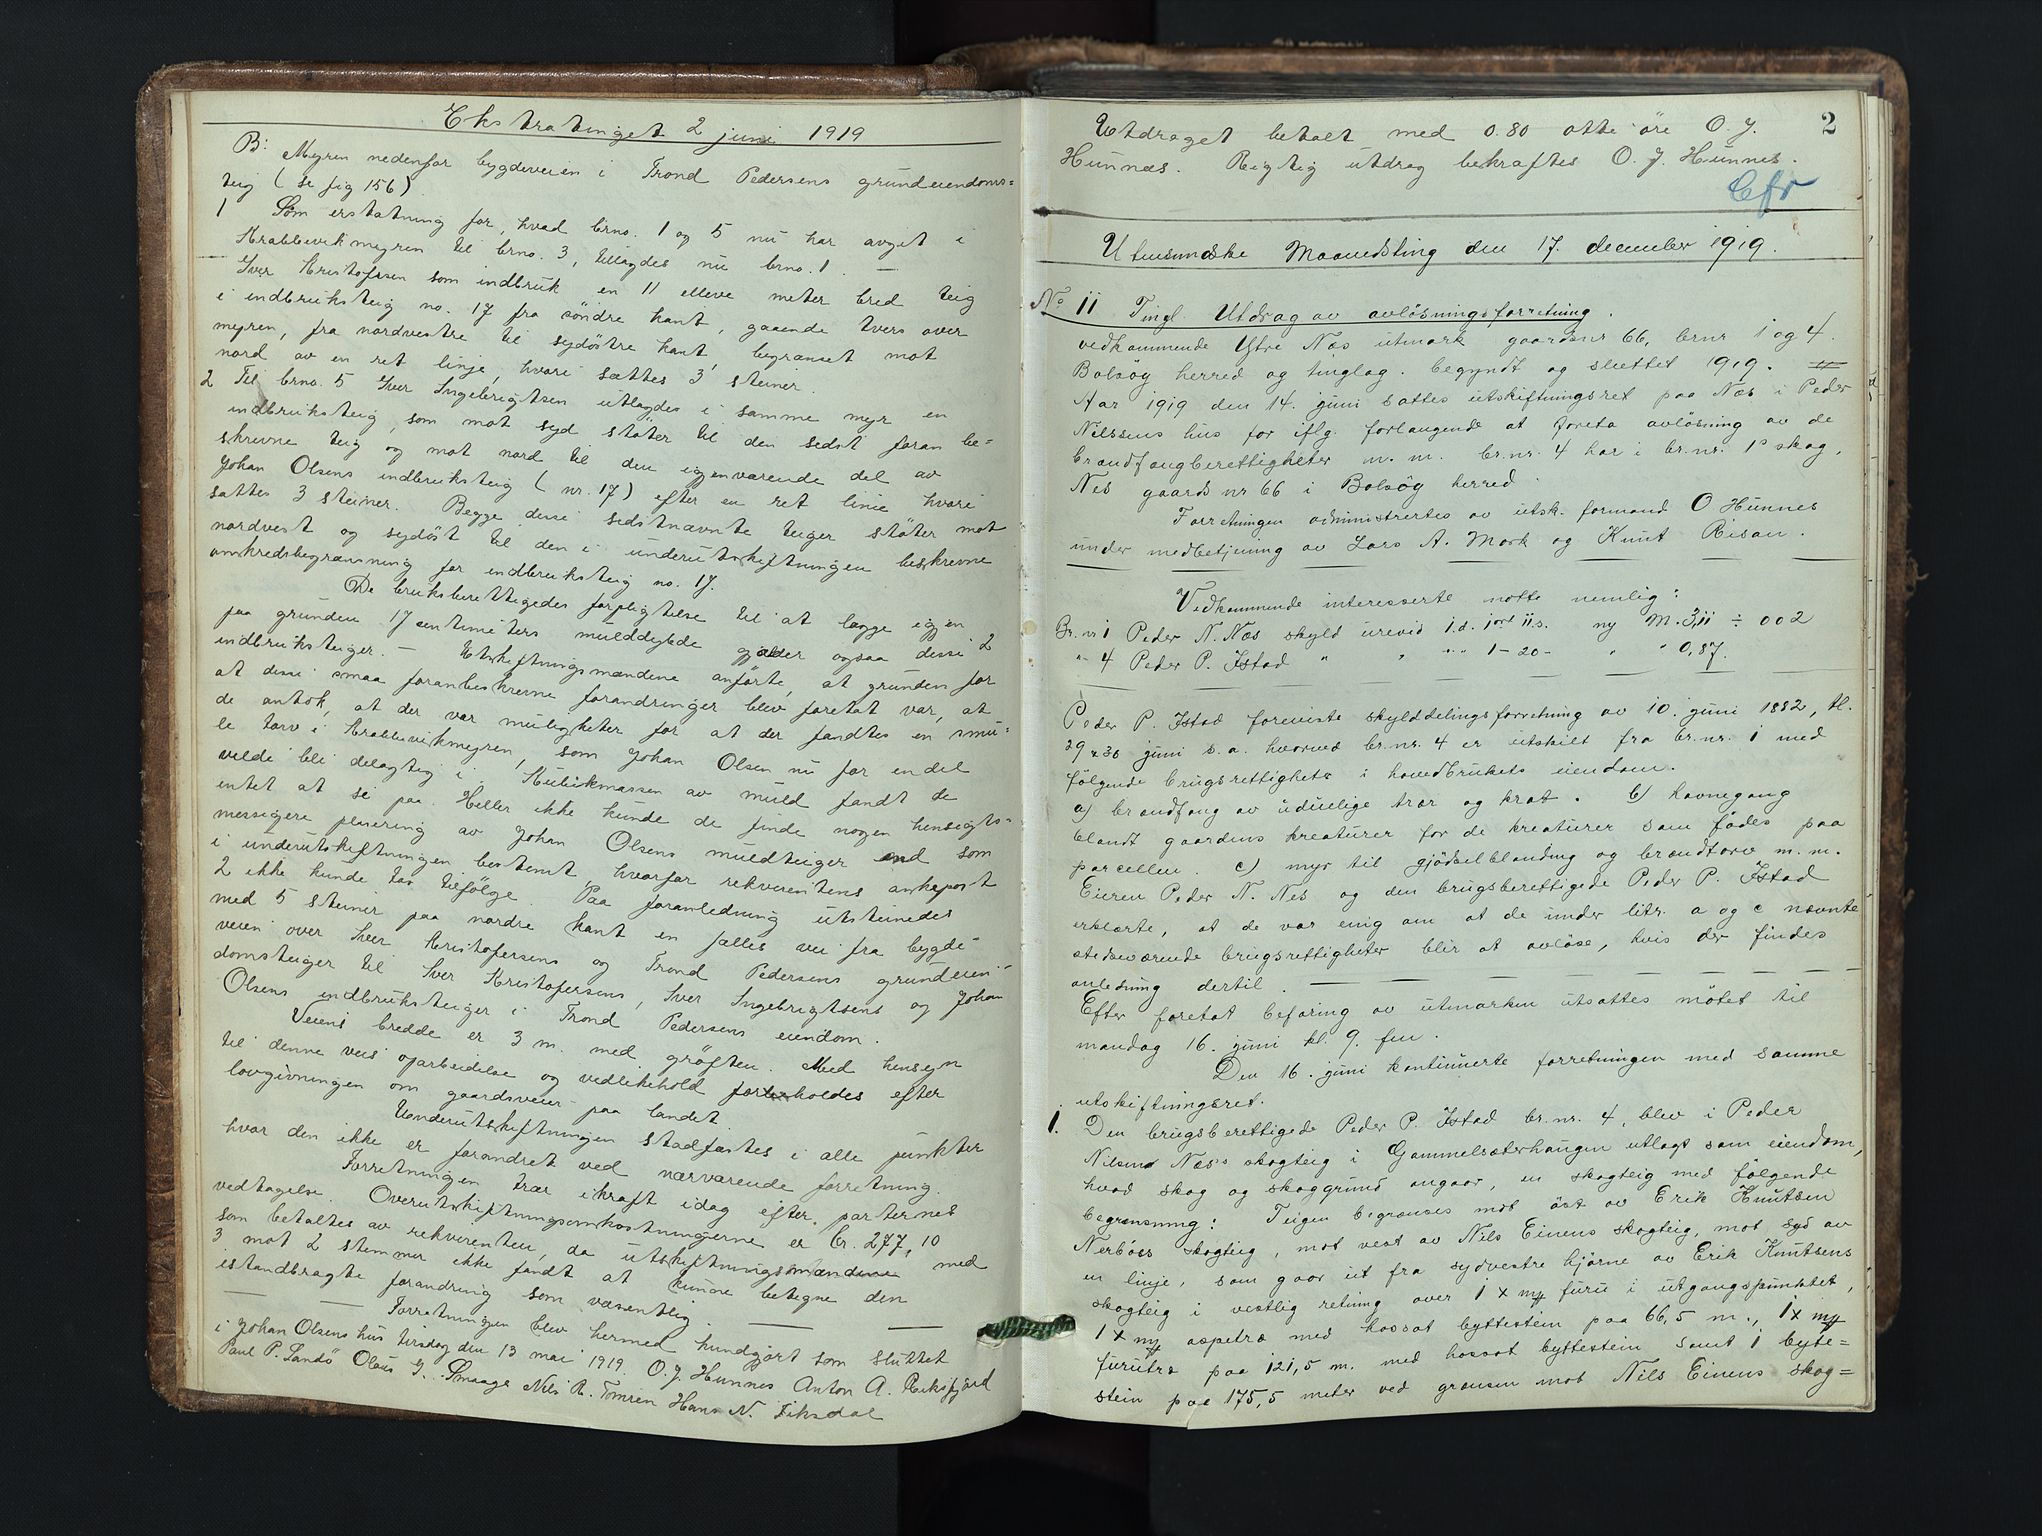 Ekstratinget 2 juni 1919
B: Myren nedenfor bygdeveien i Trond Pedersens grundeiendoms=
teig (se fig 156).
1 Som erstatning for, hvad brno. 1 og 5 nu har avget i
Krabbevikmyren til brno. 3, tillagdes nu brno. 1. —
Iver Kristofersen som indbruk en 11 elleve meter bred teig
i indbruksteig no. 17 fra söndre kant, gaaende tvers over
myren, fra nordvestre til sydöstre kant, begrænset mot
nord av en ret linje, hvori sættes 3 steiner.
2 Til brno. 5 Iver Ingebrigtsen utlagdes i samme myr en
indbruksteig, som mot syd stöter til den sidst foran be=
skrevne teig og mot nord til den igjenværende del av
Johan Olsens indbruksteig (nr. 17) efter en ret linie hvori
sattes 3 steiner. Begge disse sidstnævnte teiger stöter mot
nordvest og sydöst til den i underutskiftningen beskrevne
omkredsbegrænsning for indbruksteig no. 17.
De bruksberettigedes forpligtelse til at lægge igjen
paa grunden 17 centimeters mulddybde gjælder ogsaa disse 2
indbruksteiger. — Utskiftningsmændene anförte, at grunden for
at disse smaa foranbeskrevne forandringer blev foretat var, at
de antok, at der var muligheter for at der fandtes en smu=
le torv i Krabbevikmyren, som Johan Olsen nu for en del
vilde bli delagtig i. Kubikmassen av muld fandt de
intet at si paa. Heller ikke kunde de finde nogen hensigts=
messigere plasering av Johan Olsens muldteiger end som
i underutskiftningen bestemt, hvorfor rekvirentens ankepost
2 ikke kunde tas tilfölge. Paa foranledning utsteinedes
med 5 steiner paa nordre kant en fælles vei fra bygde=
veien over Iver Kristofersens og Trond Pedersens grundeien=
domsteiger til Iver Kristofersens, Iver Ingebrigtsens og Johan
Olsens indbruksteiger i Trond Pedersens eiendom.
Veiens bredde er 3 m. med gröften. Med hensyn
til denne veis oparbeidelse og vedlikehold forholdes efter
lovgivningen om gaardsveier paa landet.
Underutskiftningen stadfæstes i alle punkter
hvor den ikke er forandret ved nærværende forretning.
Forretningen trær i kraft idag efter parternes
vedtagelse. Overutskiftningsomkostningerne er kr. 277,10
som betaltes av rekvirenten, da utskiftningsmændene med
3 mot 2 stemmer ikke fandt at kunne betegne den
istandbragte forandring som væsentlig.
Forretningen blev hermed kundgjort som sluttet
i Johan Olsens hus tirsdag den 13 mai 1919. O. J. Hunnes Anton A. Reksfjord
Paul P. Sandö Olaus G. Smaage Nils R. Tomren Hans N. Fiksdal
2
Utdraget betalt med 0.80 otti öre O. J.
Hunnæs. Rigtig utdrag bekræftes O. J. Hunnes.
Cfr
Utensundske Maanedsting den 17. december 1919.
No 11 Tingl. Utdrag av avlösningsforretning.
vedkommende Ytre Næs utmark gaardsnr 66, brnr 1 og 4.
Bolsöy herred og tinglag. begyndt og sluttet 1919.
Aar 1919 den 14. juni sattes utskiftningsret paa Næs i Peder
Nilssens hus for iflg. forlangende at foreta avlösning av de
brændfangberettigheter m. m. br.nr. 4 har i br.nr. 1s skog,
Nes gaards nr 66 i Bolsöy herred.
Forretningen administrertes av utsk. formand O Hunnes
under medbetjening av Lars A. Mork og Knut Risan.
Vedkommende interesserte mötte nemlig:
Br. nr 1 Peder N. Næs skyld urevid 1.d. 1 ort 11 s. ny M. 3,11 ÷ 002
" 4 Peder P. Istad " " " 1 - 20 - " " 0,87.
Peder P. Istad foreviste skylddelingsforretning av 10. juni 1882, tl.
29 & 30 juni s. a. hvorved br.nr. 4 er utskilt fra br.nr. 1 med
fölgende brugsrettigheter i hovedbrukets eiendom.
a) brændfang av uduelige trær og krat. b) havnegang
blandt gaardens kreaturer for de kreaturer som födes paa
parcellen. c) myr til gjödselblanding og brændtorv m. m.
Eieren Peder N. Nes og den brugsberettigede Peder P. Istad
erklærte, at de var enig om at de under litr. a og c nævnte
stedsværende brugsrettigheter blir at avlöse, hvis der findes
anledning dertil.
Efter foretat befaring av utmarken utsattes mötet til
mandag 16. juni kl. 9. fm.
Den 16. juni kontinuerte forretningen med samme
utskiftningsret.
1. Den brugsberettigede Peder P. Istad br. nr. 4, blev i Peder
Nilsens Næs's skogteig i Gammelsæterhaugen utlagt som eiendom,
hvad skog og skoggrund angaar, en skogteig med fölgende
begrænsning: Teigen begrænses mot öst av Erik Knutsen
Nerböss skogteig, mot vest av Nils Einens skogteig, mot syd av
en linje, som gaar ut fra sydvestre hjörne av Erik Knutsens
skogteig i vestlig retning over 1 x my furu i utgangspunktet,
1 x my aspetræ med hossat byttestein paa 66,5 m., 1 x my
furutræ paa 121,5 m. med hossat byttestein samt 1 byte=
stein paa 175,5 meter ved grænsen mot Nils Einens skog=